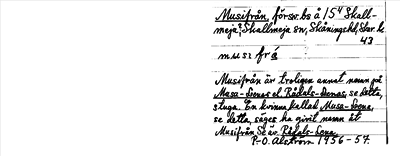 Musifrån, försv. bs å 15⁴ Skall-
meja, Skallmeja sn, Skånings hd, Skar. l.
43
musifrå
Musifrån är troligen annat namn på
Masa-Lenas el. Rådals-Lenas, se detta,
stuga. En kvinna kallad Musa-Lena,
se detta, säges ha givit namn åt
Musifrån. Se äv. Rådals-Lena.
P-O. Alström. 1956-57.